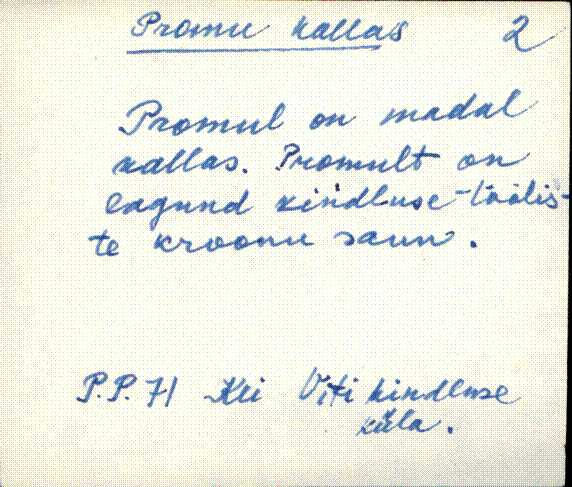 Promu kallas 2
Promul on madal
kallas. Promult on
lagund kindluse-töölis-
te kroonu saun.
P.P. 71 Kei Viti kindluse
küla.